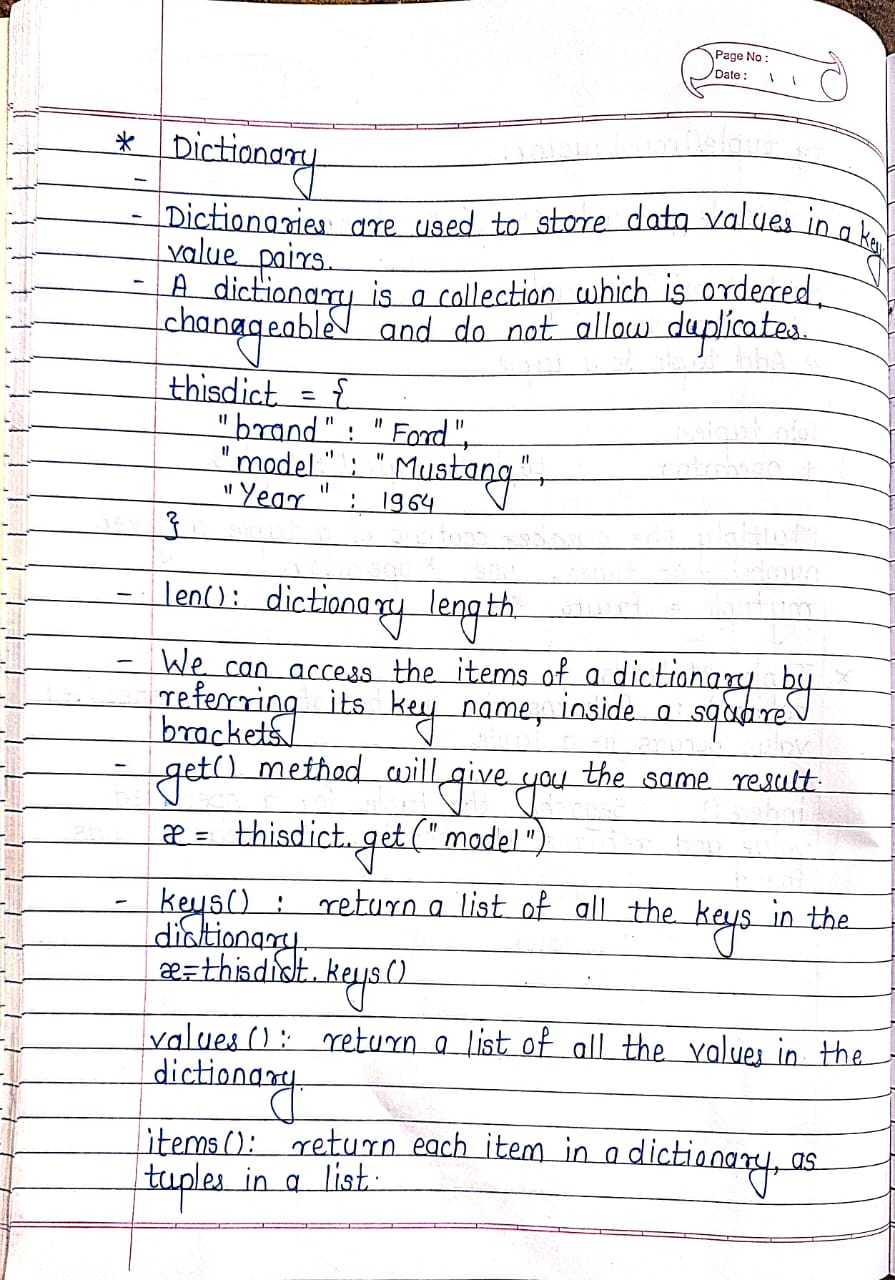 Page No :
Date : \ \
* Dictionary
-
- Dictionaries are used to store data values in a key
value pairs.
- A dictionary is a collection which is ordered,
chanageable and do not allow duplicates.
thisdict = {
"brand" : "Ford",
"model" : "Mustang",
"Year" : 1964
}
- len(): dictionary length
- We can access the items of a dictionary by
referring its key name, inside a square
brackets
- get() method will give you the same result.
x = thisdict.get("model")
- keys() : return a list of all the keys in the
dictionary.
x=thisdict.keys()
values(): return a list of all the values in the
dictionary.
items(): return each item in a dictionary, as
tuples in a list.